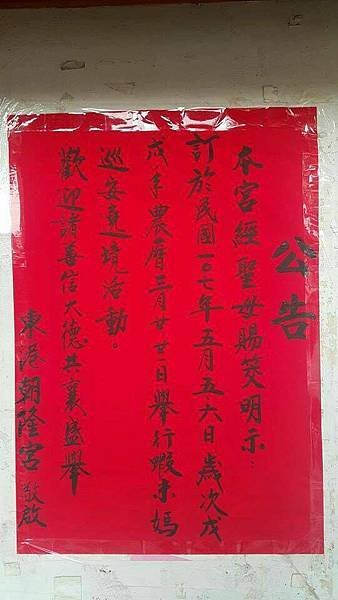 公告
本宮經聖母賜筊明示：
訂於民國一〇七年五月五六日歲次戊
戌年農曆三月廿廿一日舉行蝦米媽
巡安遶境活動。
歡迎請善信大德共襄盛舉
東港朝隆宮 敬啟